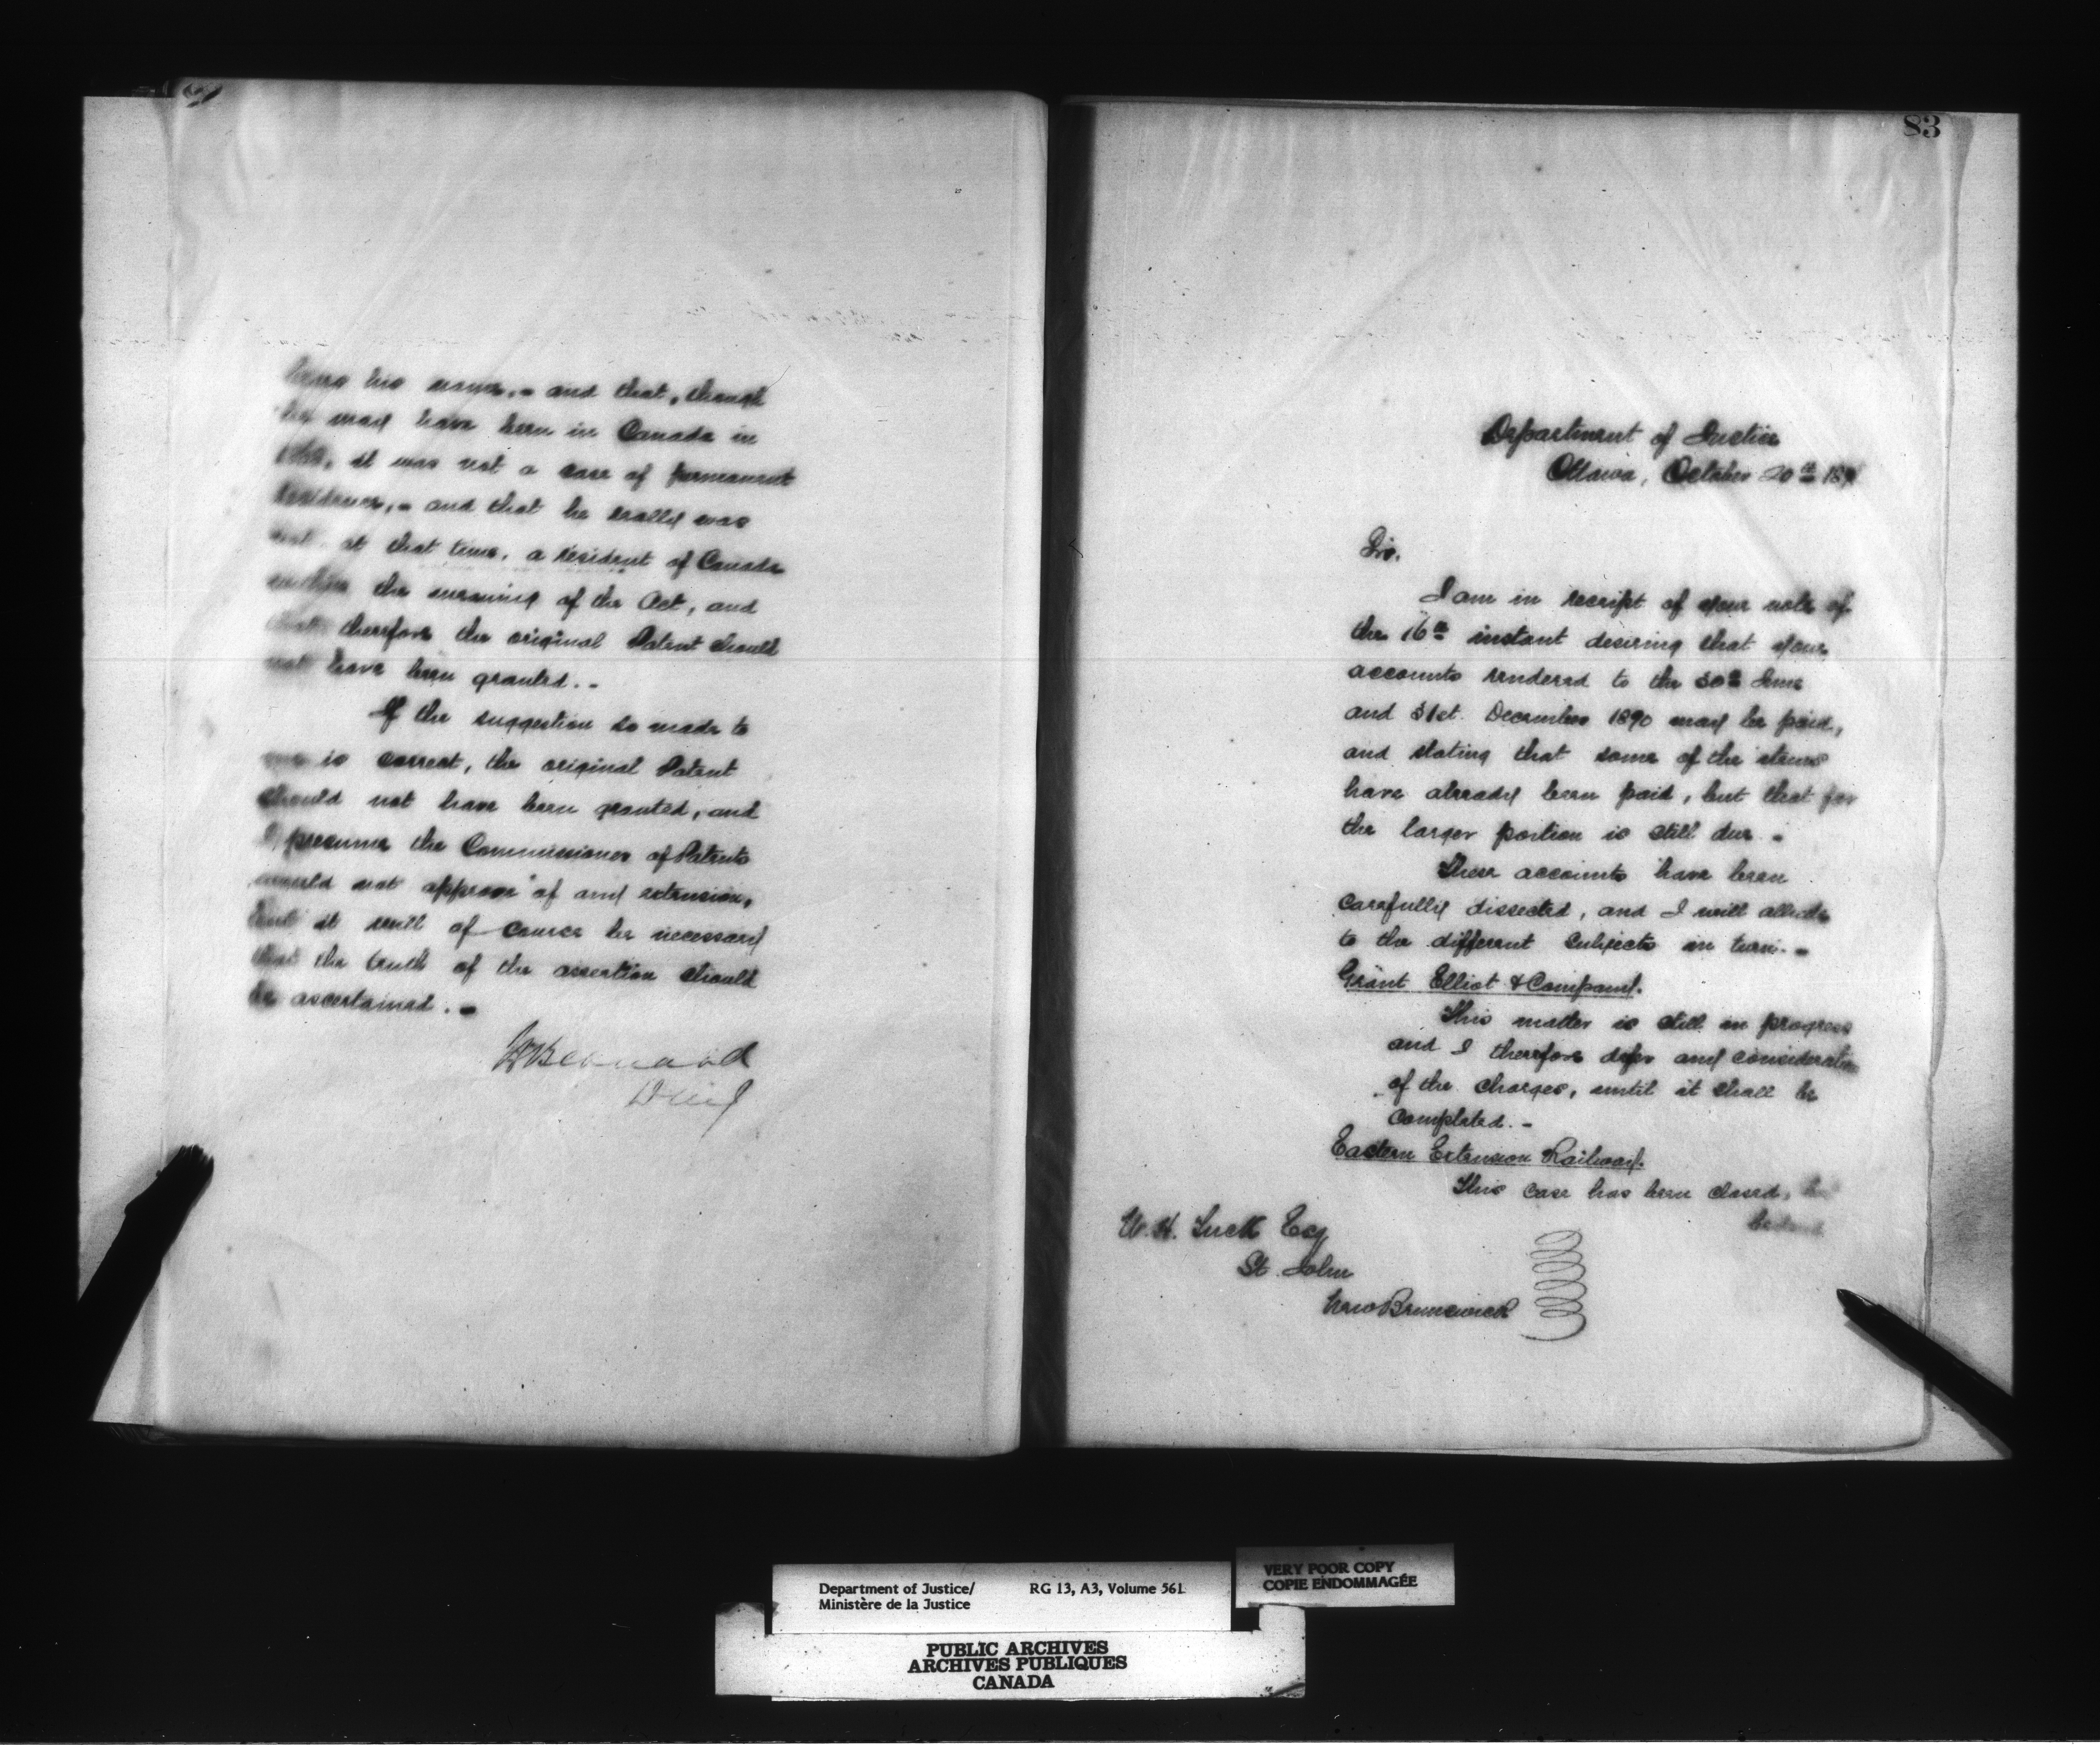 his name,- and that, though
he may have been in Canada in
it was not a case of permanent
residence,- and that he really was
not, at that time, a resident of Canada
within the meaning of the Act, and
that therefore the original Patent should
not have been granted.-
If the suggestion so made to
me is correct, the original Patent
should not have been granted, and
I presume the Commissioner of Patents
would not approve of any extension,
but it will of course be necessary
that the truth of the assertion should
be ascertained.-
HBernard
83
Department of Justice
Ottawa, October 20th 189
Sir.
I am in receipt of your note of
the 16th instant desiring that your
accounts rendered to the 30th June
and 31st. December 1890 may be paid,
and stating that some of the items
have already been paid, but that far
the larger portion is still due.-
These accounts have been
carefully dissected, and I will allude
to the different subjects in turn.-
Grant Elliot & Company.
This matter is still in progress
and I therefore defer any consideration
of the charges, until it shall be
completed.-
Eastern Extension Railway.
This case has been closed,
W. H. Tuck Esq
St. John
New Brunswick
Department of Justice/ RG 13, A3, Volume 561
Ministère de la Justice
VERY POOR COPY
COPIE ENDOMMAGÉE
PUBLIC ARCHIVES
ARCHIVES PUBLIQUES
CANADA